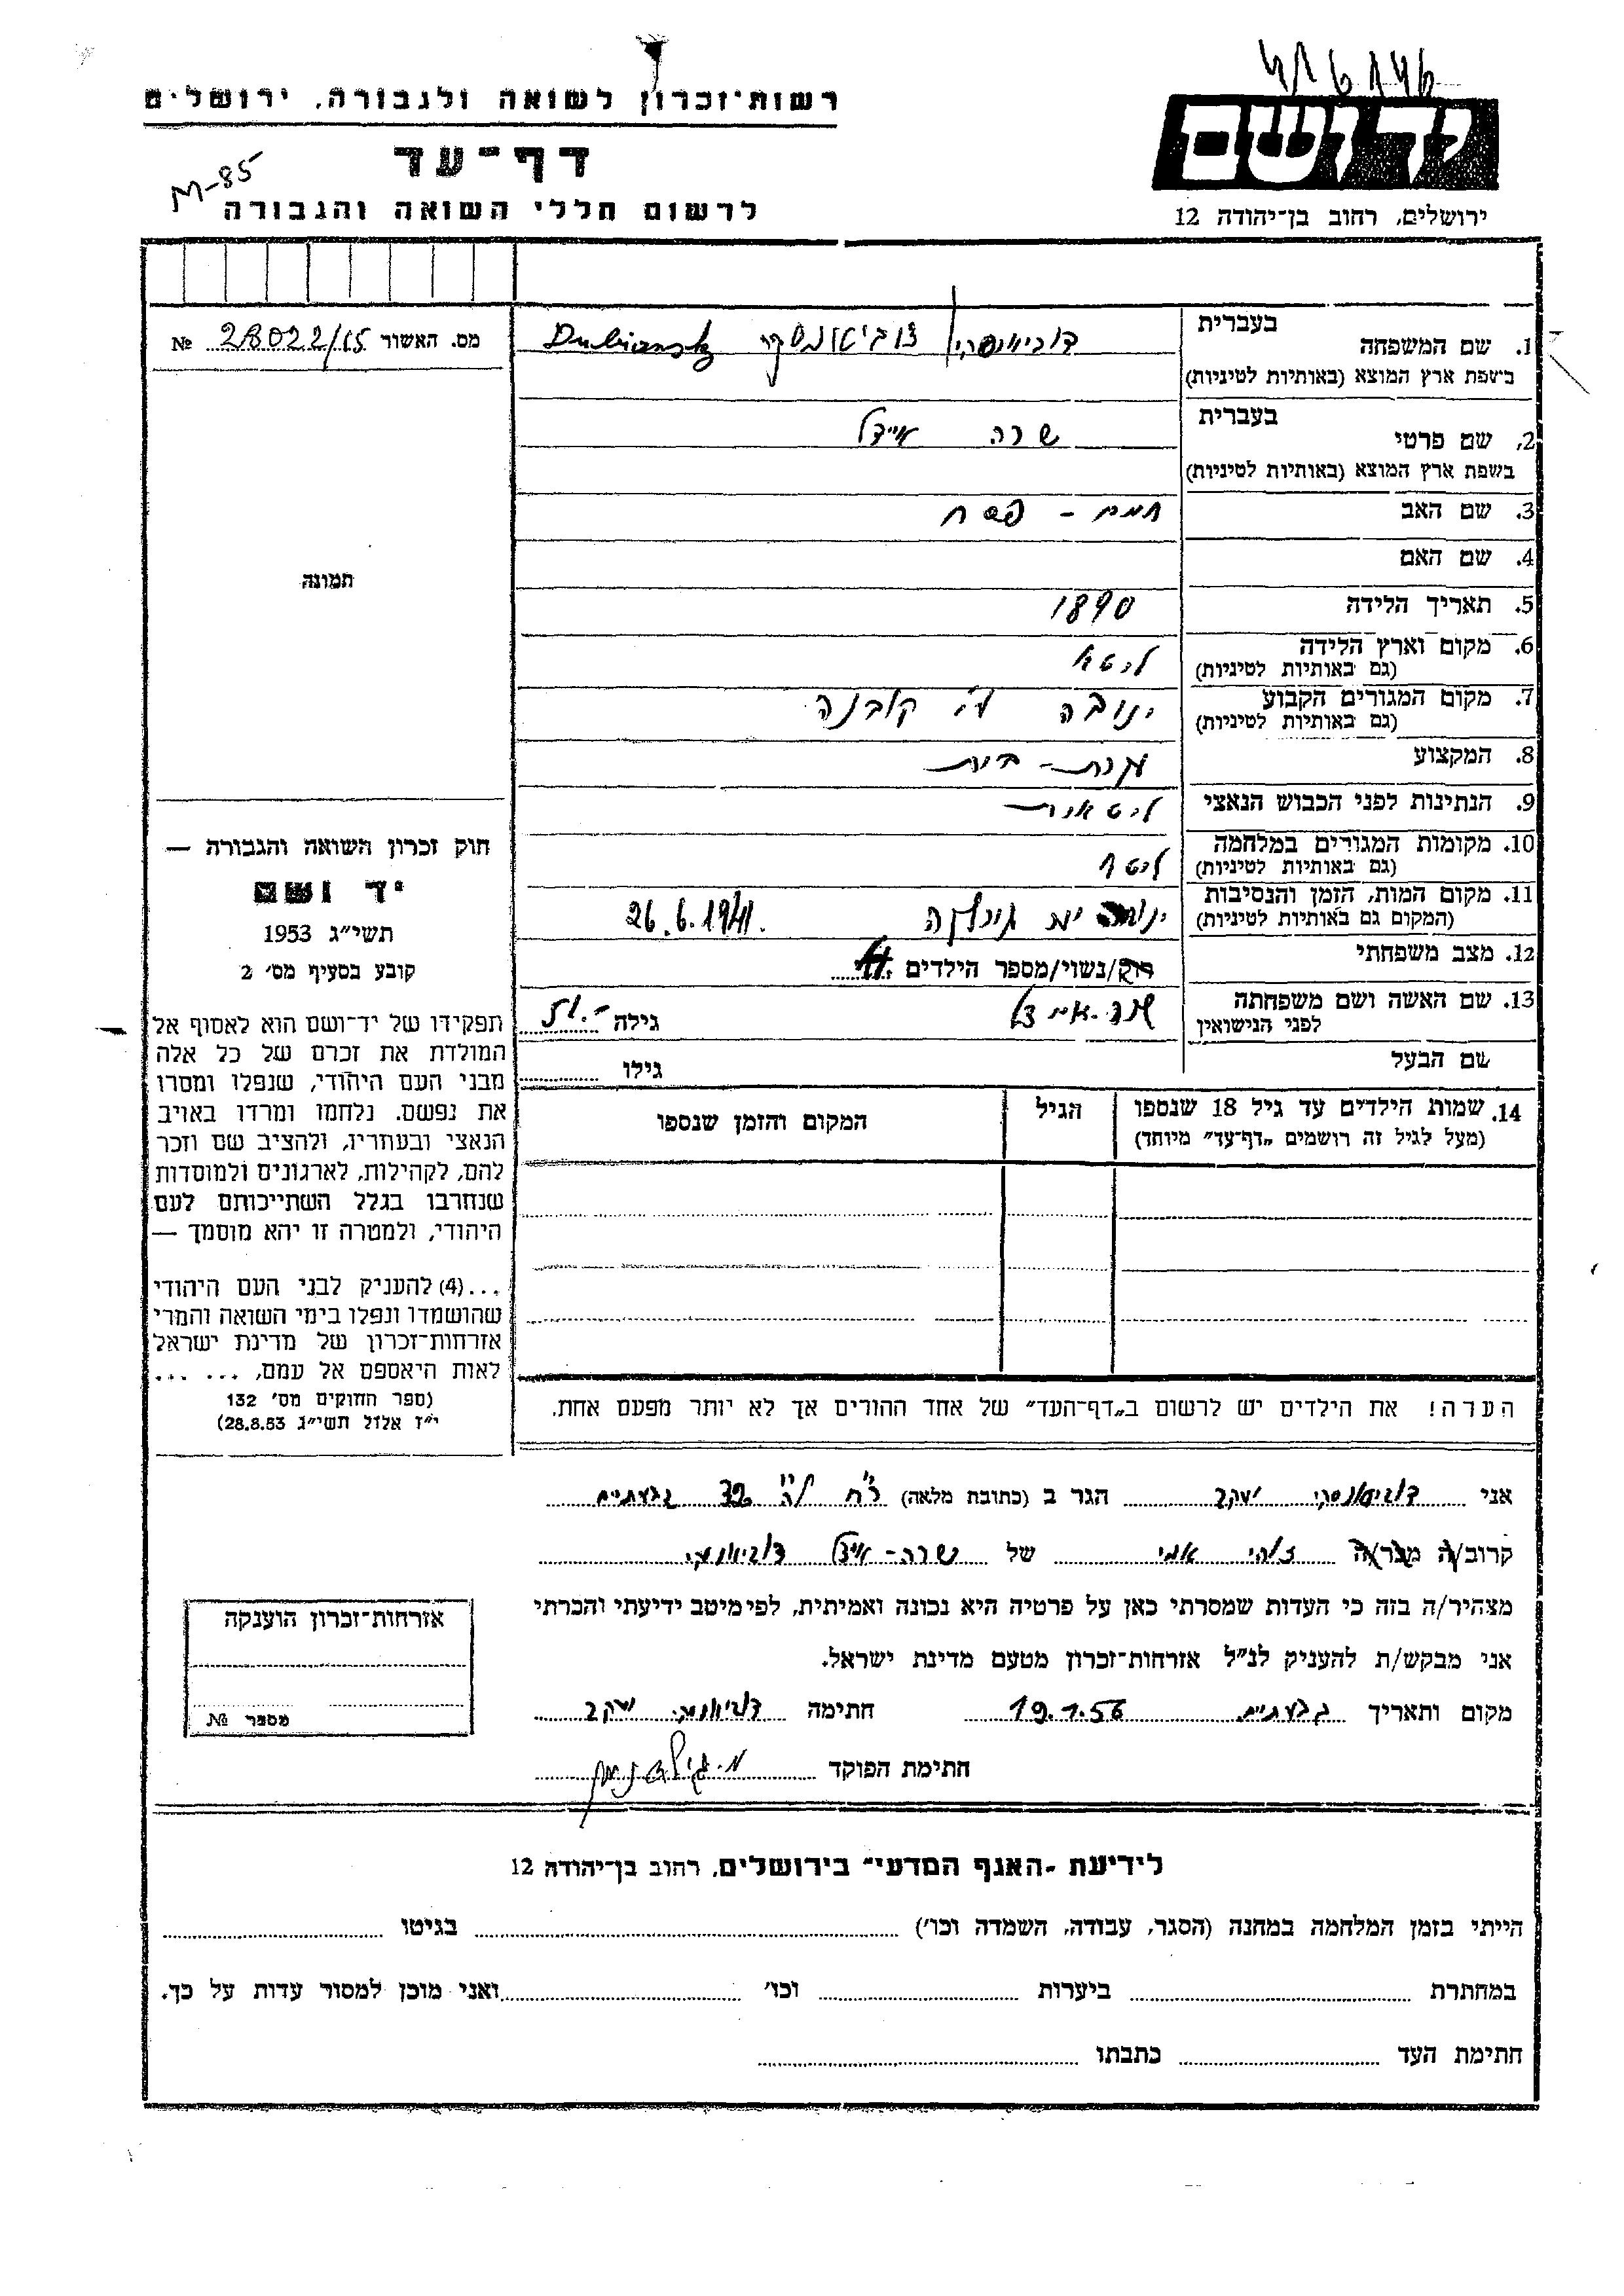 416146
רשות־זכרון לשואה ולגבורה, ירושלים
יד ושם
ירושלים, רחוב בן־יהודה 12
דף־עד
M-85
לרשום חללי השואה והגבורה
מס. האשור 28022/15 №
1. שם המשפחה בעברית
בשפת ארץ המוצא (באותיות לטיניות)
דוביאנסקי Dubiansky
2. שם פרטי בעברית
בשפת ארץ המוצא (באותיות לטיניות)
שרה איידל
3. שם האב
פסח
4. שם האם
5. תאריך הלידה 1890
6. מקום וארץ הלידה
(גם באותיות לטיניות)
ליטא
7. מקום המגורים הקבוע
(גם באותיות לטיניות)
ינובה ע"י קובנה
8. המקצוע עקרת-בית
9. הנתינות לפני הכבוש הנאצי ליטאית
10. מקומות המגורים במלחמה
(גם באותיות לטיניות)
ליטא
11. מקום המות, הזמן והנסיבות
(המקום גם באותיות לטיניות)
26.6.1941.
12. מצב משפחתי
רוק/נשוי/מספר הילדים
13. שם האשה ושם משפחתה
לפני הנישואין
שרה-איידל גילה 51.-
שם הבעל גילו
14. שמות הילדים עד גיל 18 שנספו
(מעל לגיל זה רושמים „דף־עד” מיוחד)
הגיל
המקום והזמן שנספו
הערה! את הילדים יש לרשום ב„דף־העד” של אחד ההורים אך לא יותר מפעם אחת.
תמונה
חוק זכרון השואה והגבורה —
יד ושם
תשי״ג 1953
קובע בסעיף מס׳ 2
תפקידו של יד־ושם הוא לאסוף אל
המולדת את זכרם של כל אלה
מבני העם היהודי, שנפלו ומסרו
את נפשם. נלחמו ומרדו באויב
הנאצי ובעוזריו, ולהציב שם וזכר
להם, לקהילות, לארגונים ולמוסדות
שנחרבו בגלל השתייכותם לעם
היהודי, ולמטרה זו יהא מוסמך —
...(4) להעניק לבני העם היהודי
שהושמדו ונפלו בימי השואה והמרי
אזרחות־זכרון של מדינת ישראל
לאות היאספם אל עמם, ... ...
(ספר החוקים מס׳ 132
י״ז אלול תשי״ג 28.8.53)
אני דוביאנסקי יעקב הגר ב (כתובת מלאה) רח' גבעתיים
קרוב/ה מכר/ה זוהי אמי של שרה-איידל דוביאנסקי
מצהיר/ה בזה כי העדות שמסרתי כאן על פרטיה היא נכונה ואמיתית, לפי מיטב ידיעתי והכרתי
אני מבקש/ת להעניק לנ״ל אזרחות־זכרון מטעם מדינת ישראל.
מקום ותאריך גבעתיים 19.1.56 חתימה דוביאנסקי יעקב
חתימת הפוקד
אזרחות־זכרון הוענקה
מספר №
לידיעת „האגף המדעי” בירושלים, רחוב בן־יהודה 12
הייתי בזמן המלחמה במחנה (הסגר, עבודה, השמדה וכו׳) בגיטו
במחתרת ביערות וכו׳ ואני מוכן למסור עדות על כך.
חתימת העד כתבתו